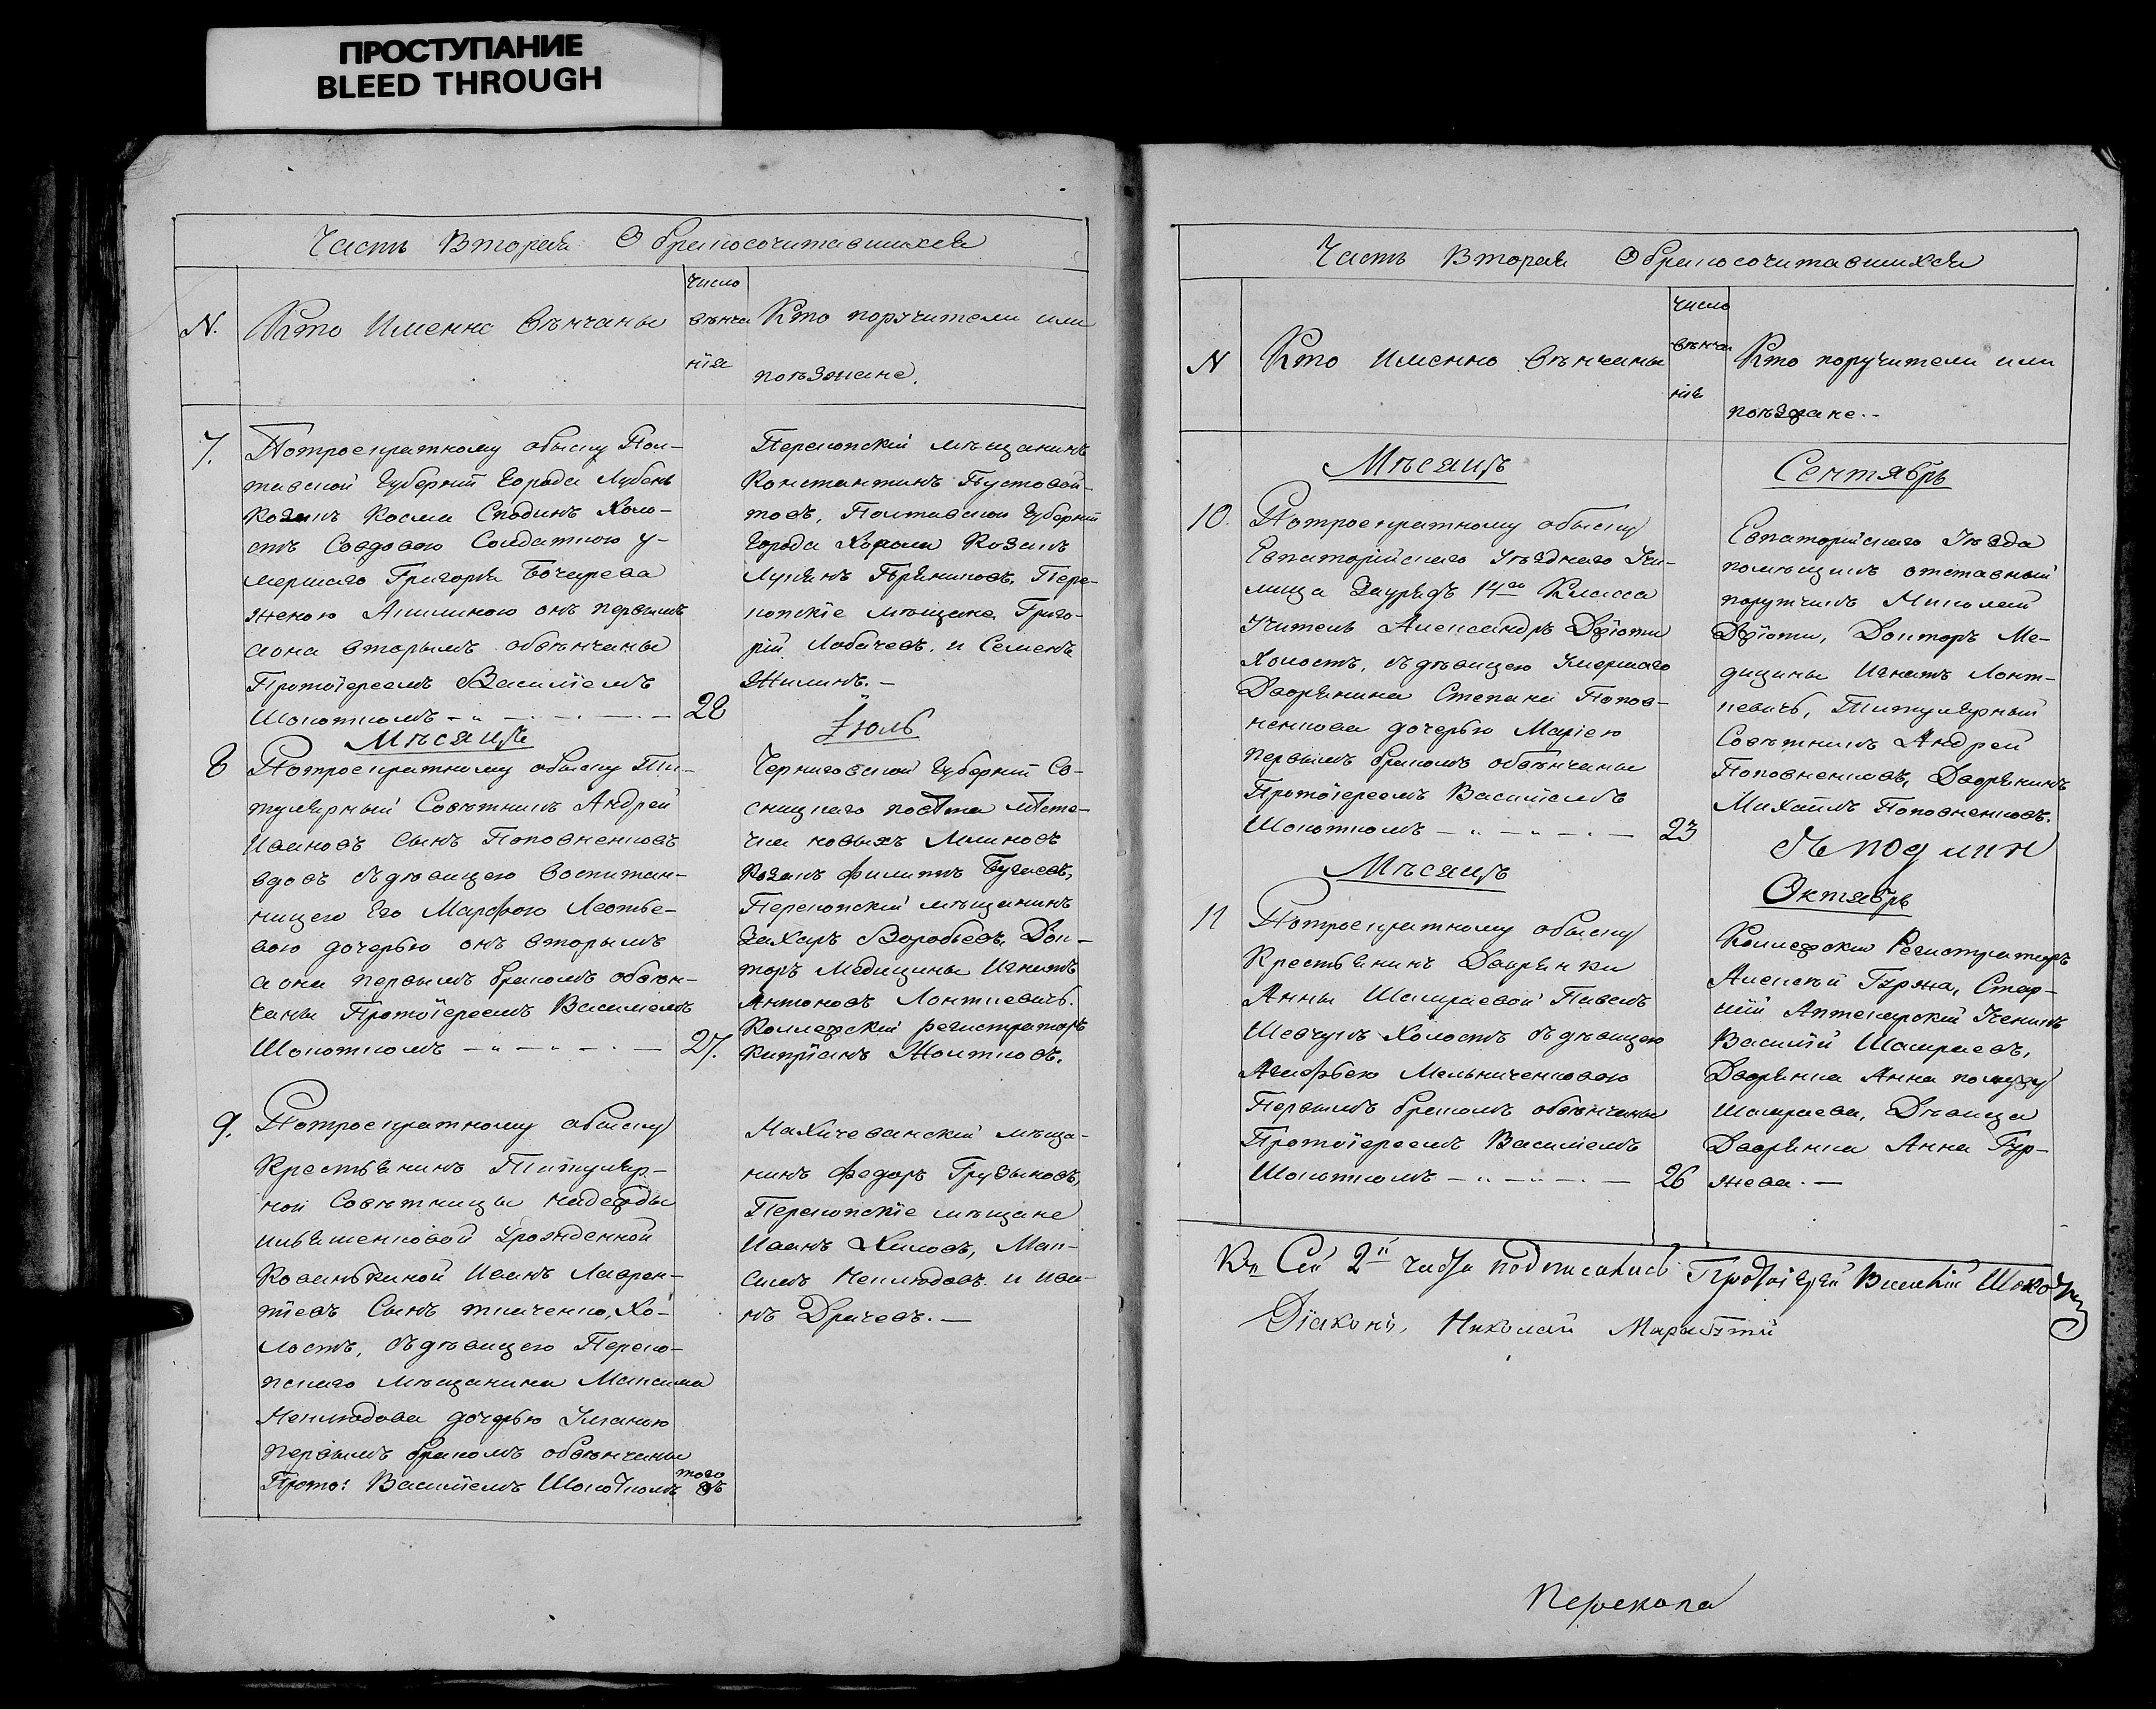 ПРОСТУПАНИЕ
BLEED THROUGH
Часть Вторая О бракосочитавшихся
N.
Кто Именно вѣнчаны
число
вѣнча
нія
Кто поручители или
поѣзжане.
7.
Потроекратному обыску Пол-
тавской Губерніи Города Лубень
Козакъ Косма Сподинъ Холо-
стъ Совдовою Солдаткою у-
мершаго Григорія Бочарева
женою Акилиною онъ первымъ
а она вторымъ обвѣнчаны
Протоіереемъ Василіемъ
Шокоткомъ
28
Перекопскій мѣщанинъ
Константинъ Пустовой-
товъ, Полтавской Губерніи
Города Хорола Козакъ
Лукьянъ Пряниковъ, Пере-
копскіе мѣщане Григо-
рій Лобачевъ, и Семенъ
Жилинъ.
Мѣсяцъ
Іюль
8
Потроекратному обыску Ти-
тулярный Совѣтникъ Андрей
Ивановъ Сынъ Поповненковъ
вдовъ съ дѣвицею воспитан-
ницею Его Марфою Леотье-
вою дочерью онъ вторымъ
а она первымъ бракомъ обвѣн-
чаны Протоіереемъ Василіемъ
Шокоткомъ
27.
Черниговской Губерніи Со-
сницкаго повѣта мѣсте-
чка новыхъ Млиновъ
Козакъ Филипъ Бугаевъ,
Перекопскій мѣщанинъ
Захаръ Воробьевъ, Док-
торъ Медицины Игнатъ
Антоновъ Лонткевичь.
Коллежскій регистраторъ
Кипріянъ Жолтковъ.
9.
Потроекратному обыску
Крестьянинъ Титуляр-
ной Совѣтницы Надежды
Урожденной
Иванъ Лаврен-
тіевъ Сынъ Ткаченко, Хо-
лостъ, съ дѣвицею Переко-
пскаго мѣщанина Максима
Неклюдова дочерью Ульяною
первымъ бракомъ обвѣнчаны
Прото: Василіемъ Шокоткомъ
того
Нахичеванскій мѣща-
нинъ Федоръ Грудыковъ,
Перекопскіе мѣщане
Иванъ Хилковъ, Мак-
симъ Неклюдовъ и Ива-
нъ Драчевъ.
Часть Вторая О бракосочитавшихся
N
Кто Именно вѣнчаны
число
вѣнча
нія
Кто поручители или
поѣзжане.
Мѣсяцъ
Сентябрь
10.
Потроекратному обыску
Евпаторійскаго Уѣзднаго Учи-
лища Заурядъ 14го Класса
Учитель Александръ
Холостъ, съ дѣвицею Умершаго
Дворянина Степана Попов-
ненкова дочерью Маріею
первымъ бракомъ обвѣнчаны
Протоіереемъ Василіемъ
Шокоткомъ
23
Евпаторійскаго Уѣзда
помѣщикъ отставный
поручикъ Николай
Докторъ Ме-
дицины Игнатъ Лонт-
кевичъ, Титулярный
Совѣтникъ Андрей
Поповненковъ, Дворянинъ
Михаилъ Поповненковъ.
Мѣсяцъ
Октябрь
11
Потроекратному обыску
Крестьянинъ Дворянки
Анны Шамраевой Павелъ
Шевчукъ Холостъ съ дѣвицею
Агафьею Мельниченковою
Первымъ бракомъ обвѣнчаны
Протоіереемъ Василіемъ
Шокоткомъ
26
Коллежскій Регистраторъ
Алексѣй Гуржа, Стар-
шій Аптекарскій Ученикъ
Василій Шамраевъ,
Дворянка Анна по мужу
Шамраева, Дѣвица
Дворянка Анна Гур-
жева.
Къ Сей 2й части подписались Протоіерей Василій Шокот
Діаконъ, Николай
Перекопа